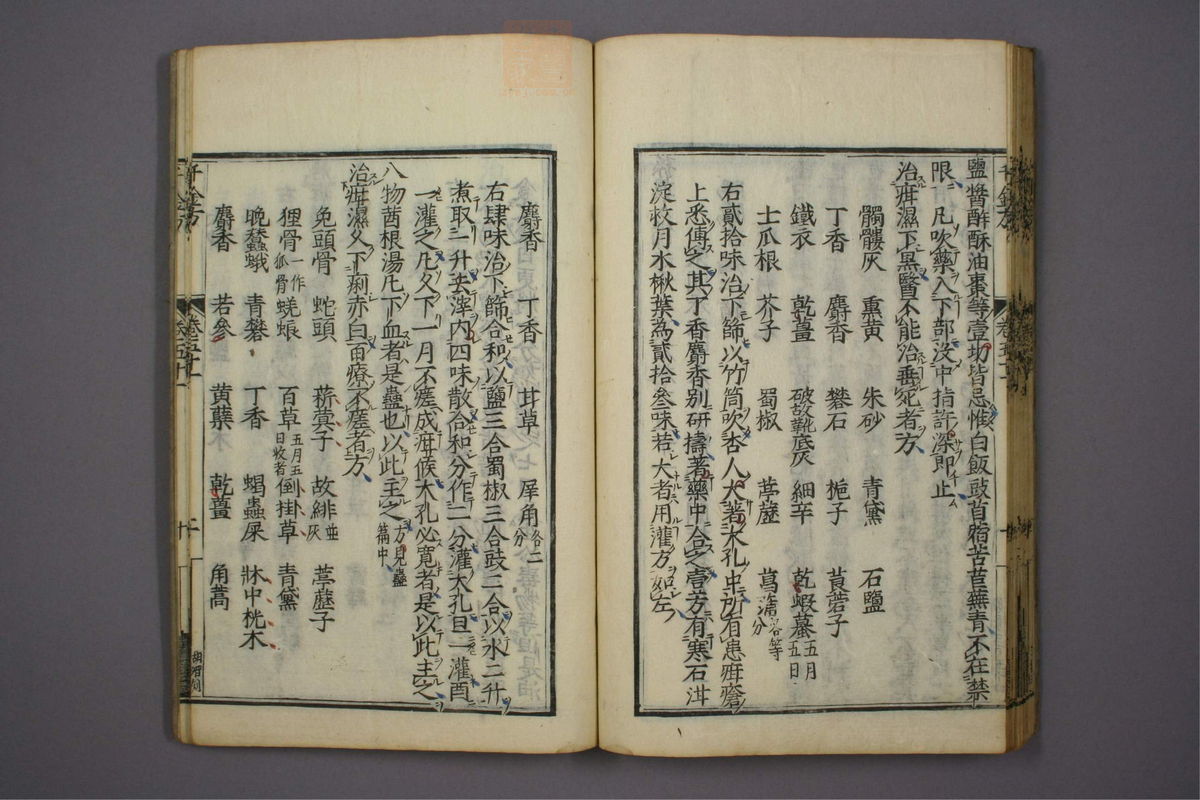 鹽醬酢酥油棗等壹切皆忌惟白飯豉首蓿苦苣蕪菁不在禁
限凡吹藥入下部没中指許深即止
治疳濕下黑醫不能治垂死者方
髑髏灰 熏黄 朱砂 青黛 石鹽
丁香 麝香 礬石 梔子 莨菪子
鐵衣 乾薑 破故靴底灰 細辛 乾蝦蟇五月五日
土瓜根 芥子 蜀椒 葶藶 菖蒲各等分
右貳拾味治下篩以竹筒吹杏人大著大孔中所有患疳瘡
上悉傅之其丁香麝香別研擣著藥中合之壹方有寒石泔
淀救月木楸葉為貳拾叁味若大者用灌方如左
麝香 丁香 甘草 犀角各二分
右肆味治下篩合和以鹽三合蜀椒三合豉二合以水二升
煮取一升去滓內四味散合和分作二分灌大孔旦一灌酉
一灌之凡久下一月不瘥成疳候大孔必寬者是以此主之
八物茜根湯凡下血者是蠱也以此主之方見蠱篇中
治疳濕久下痢赤白百療不瘥者方
兔頭骨 蛇頭 菥蓂子 故緋並灰 葶藶子
狸骨一作狐骨 蜣蜋 百草五月五日收者 倒掛草 青黛
晩蠶蛾 青礬 丁香 蝎蟲屎 牀中桄木
麝香 苦參 黄蘗 乾薑 角蒿
千金方
卷五十一